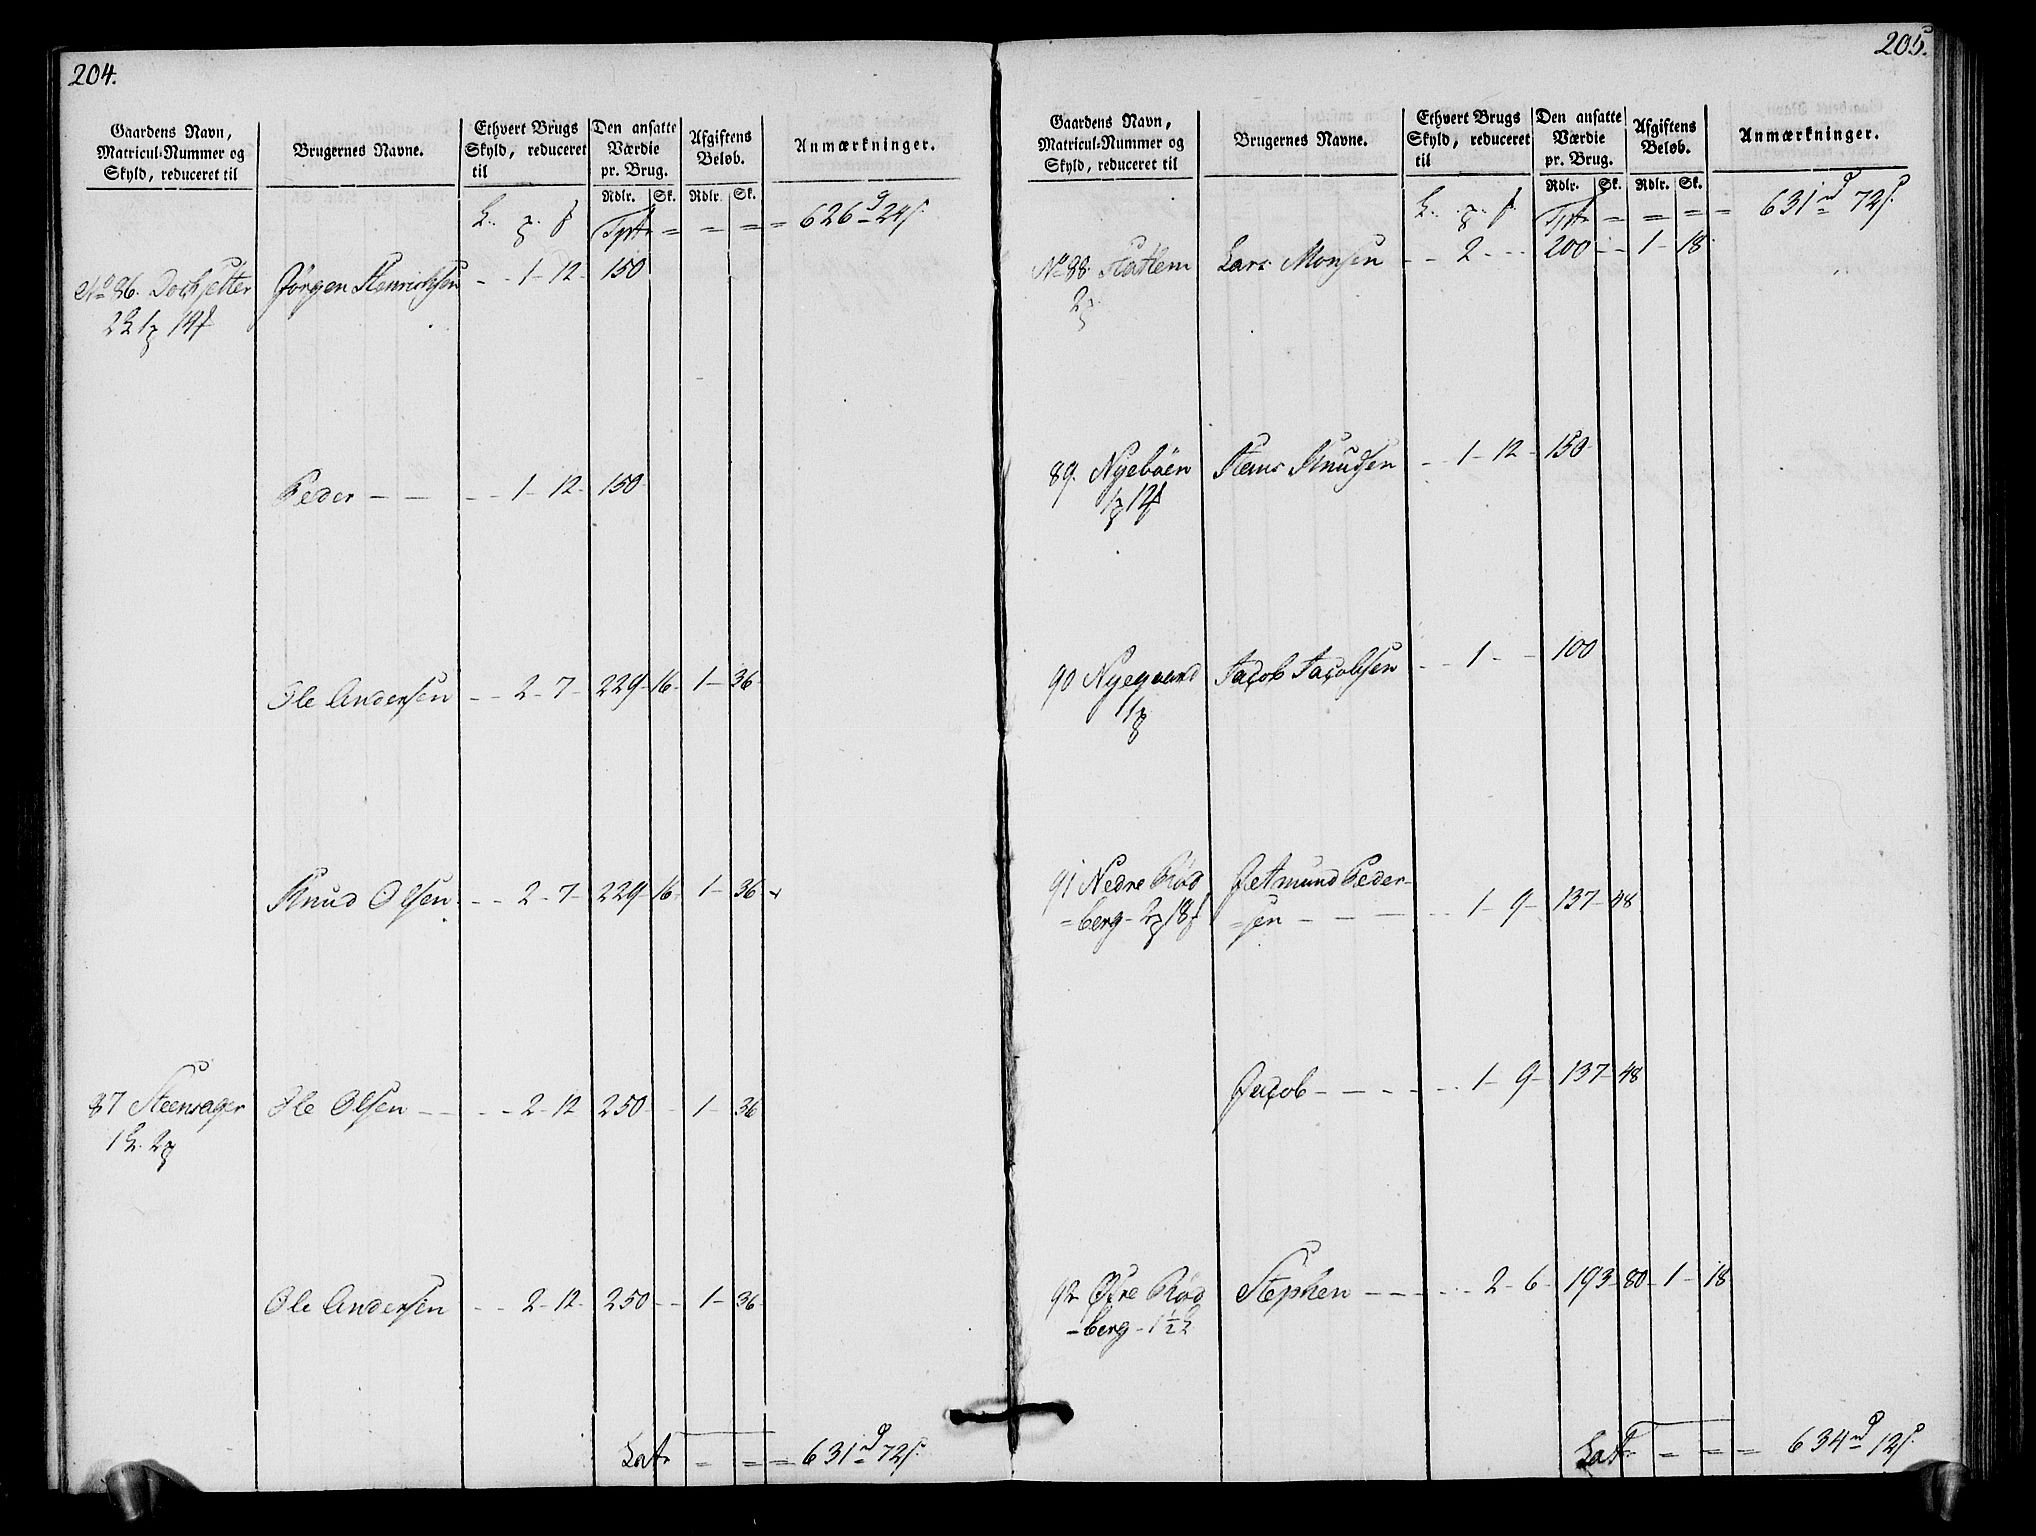 204.
Gaardens Navn, Matricul-Nummer og Skyld, reduceret til | Brugernes Navne. | Ethvert Brugs Skyld, reduceret til | Den ansatte Værdie pr. Brug. | Afgiftens Beløb. | Anmærkninger.
Rdlr. | Sk. | Rdlr. | Sk.
Tprt = = = = 626 24
No 86. Jørgen Henrichsen - - 1 - 12 - 150
Peder - - - - 1 - 12 - 150
Ole Andersen - - 2 - 7 - 229 - 16 - 1 - 36 -
Knud Olsen - - 2 - 7 - 229 - 16 - 1 - 36 -
87 Steensager Ole Olsen - - - - 2 - 12 250 - - 1 - 36
Ole Andersen - - 2 - 12 - 250 - - 1 - 36 -
Lat = = = 631 72
205.
Gaardens Navn, Matricul-Nummer og Skyld, reduceret til | Brugernes Navne. | Ethvert Brugs Skyld, reduceret til | Den ansatte Værdie pr. Brug. | Afgiftens Beløb. | Anmærkninger.
Rdlr. | Sk. | Rdlr. | Sk.
Tprt = = = = 631 72
No 88. Lars Monsen - - 2 - - - 200 - - 1 - 18
89. Nyebøen Hans Knudsen - - 1 - 12 - 150
90 Nygaard Jacob Jacobsen - - 1 - - 100
91 Nedre Rød Amund Peder-
=berg =sen - - - - 1 - 9 - 137 - 48
Jacob - - - - - 1 - 9 - 137 - 48
92 Øfre Rød Stephen - - - - - 2 - 6 - 193 - 80 - 1 - 18
-berg - 1½
Lat = = = 634 12